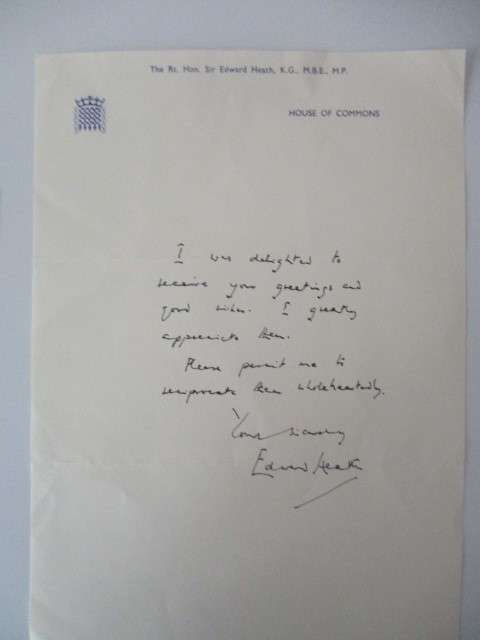 The Rt. Hon. Sir Edward Heath, K.G., M.B.E., M.P.
HOUSE OF COMMONS
I was delighted to
receive your greetings and
good wishes. I greatly
appreciate them.
Please permit me to
reciprocate them wholeheartedly.
Yours sincerely
Edward Heath